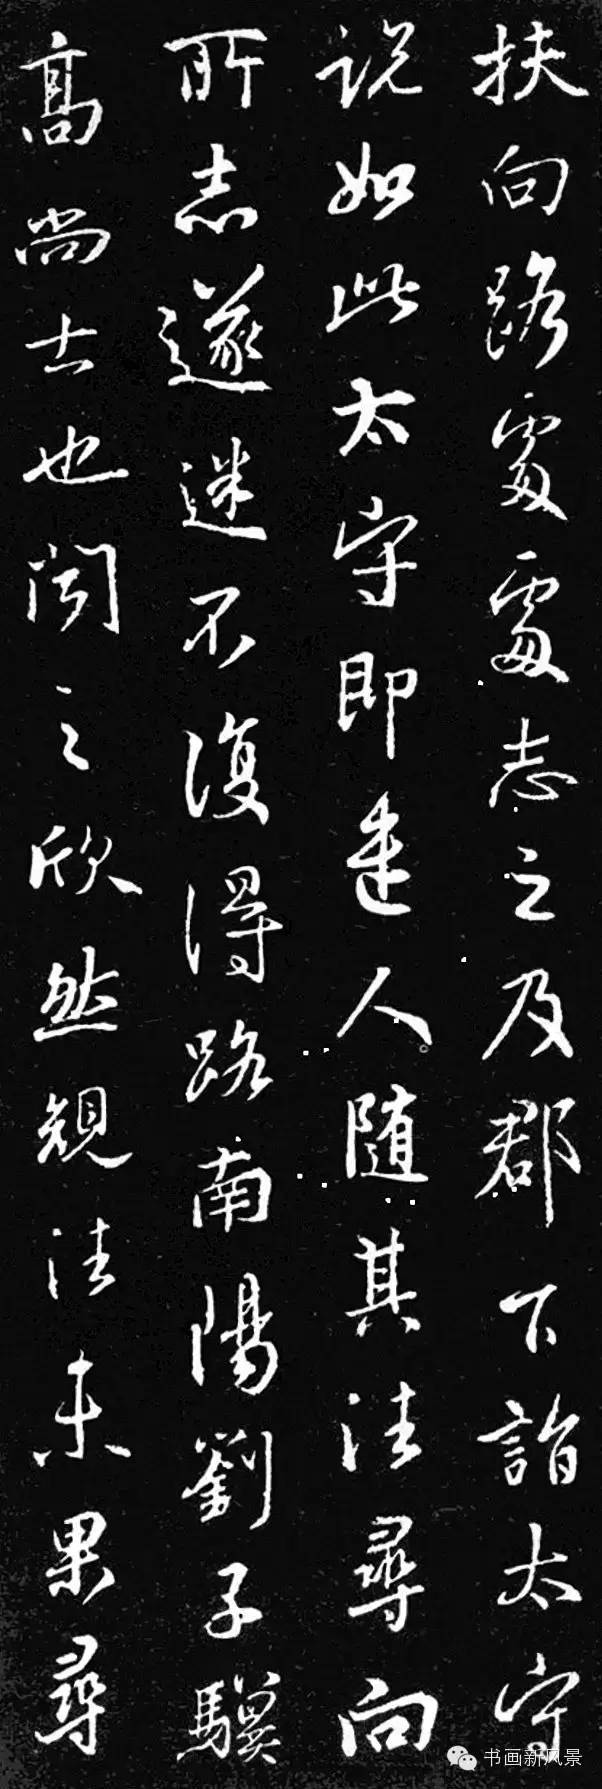 扶向路處處志之及郡下詣太守
説如此太守即遣人隨其往尋向
所志遂迷不復得路南陽劉子驥
高尚士也聞之欣然規往未果尋
书画新风景